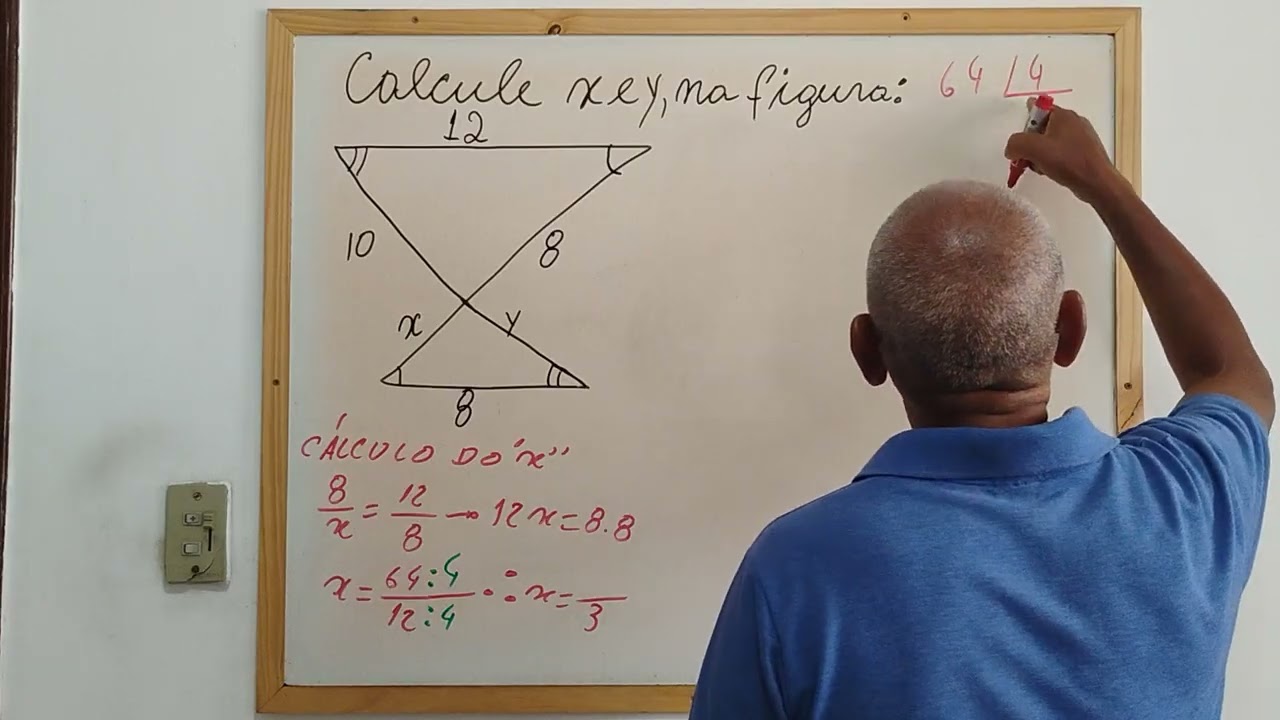 Calcule x e y, na figura:
64 | 4
12
10
8
x
y
8
CÁLCULO DO "x"
8/x = 12/8 → 12x = 8.8
x = 64:4/12:4 ∴ x = /3